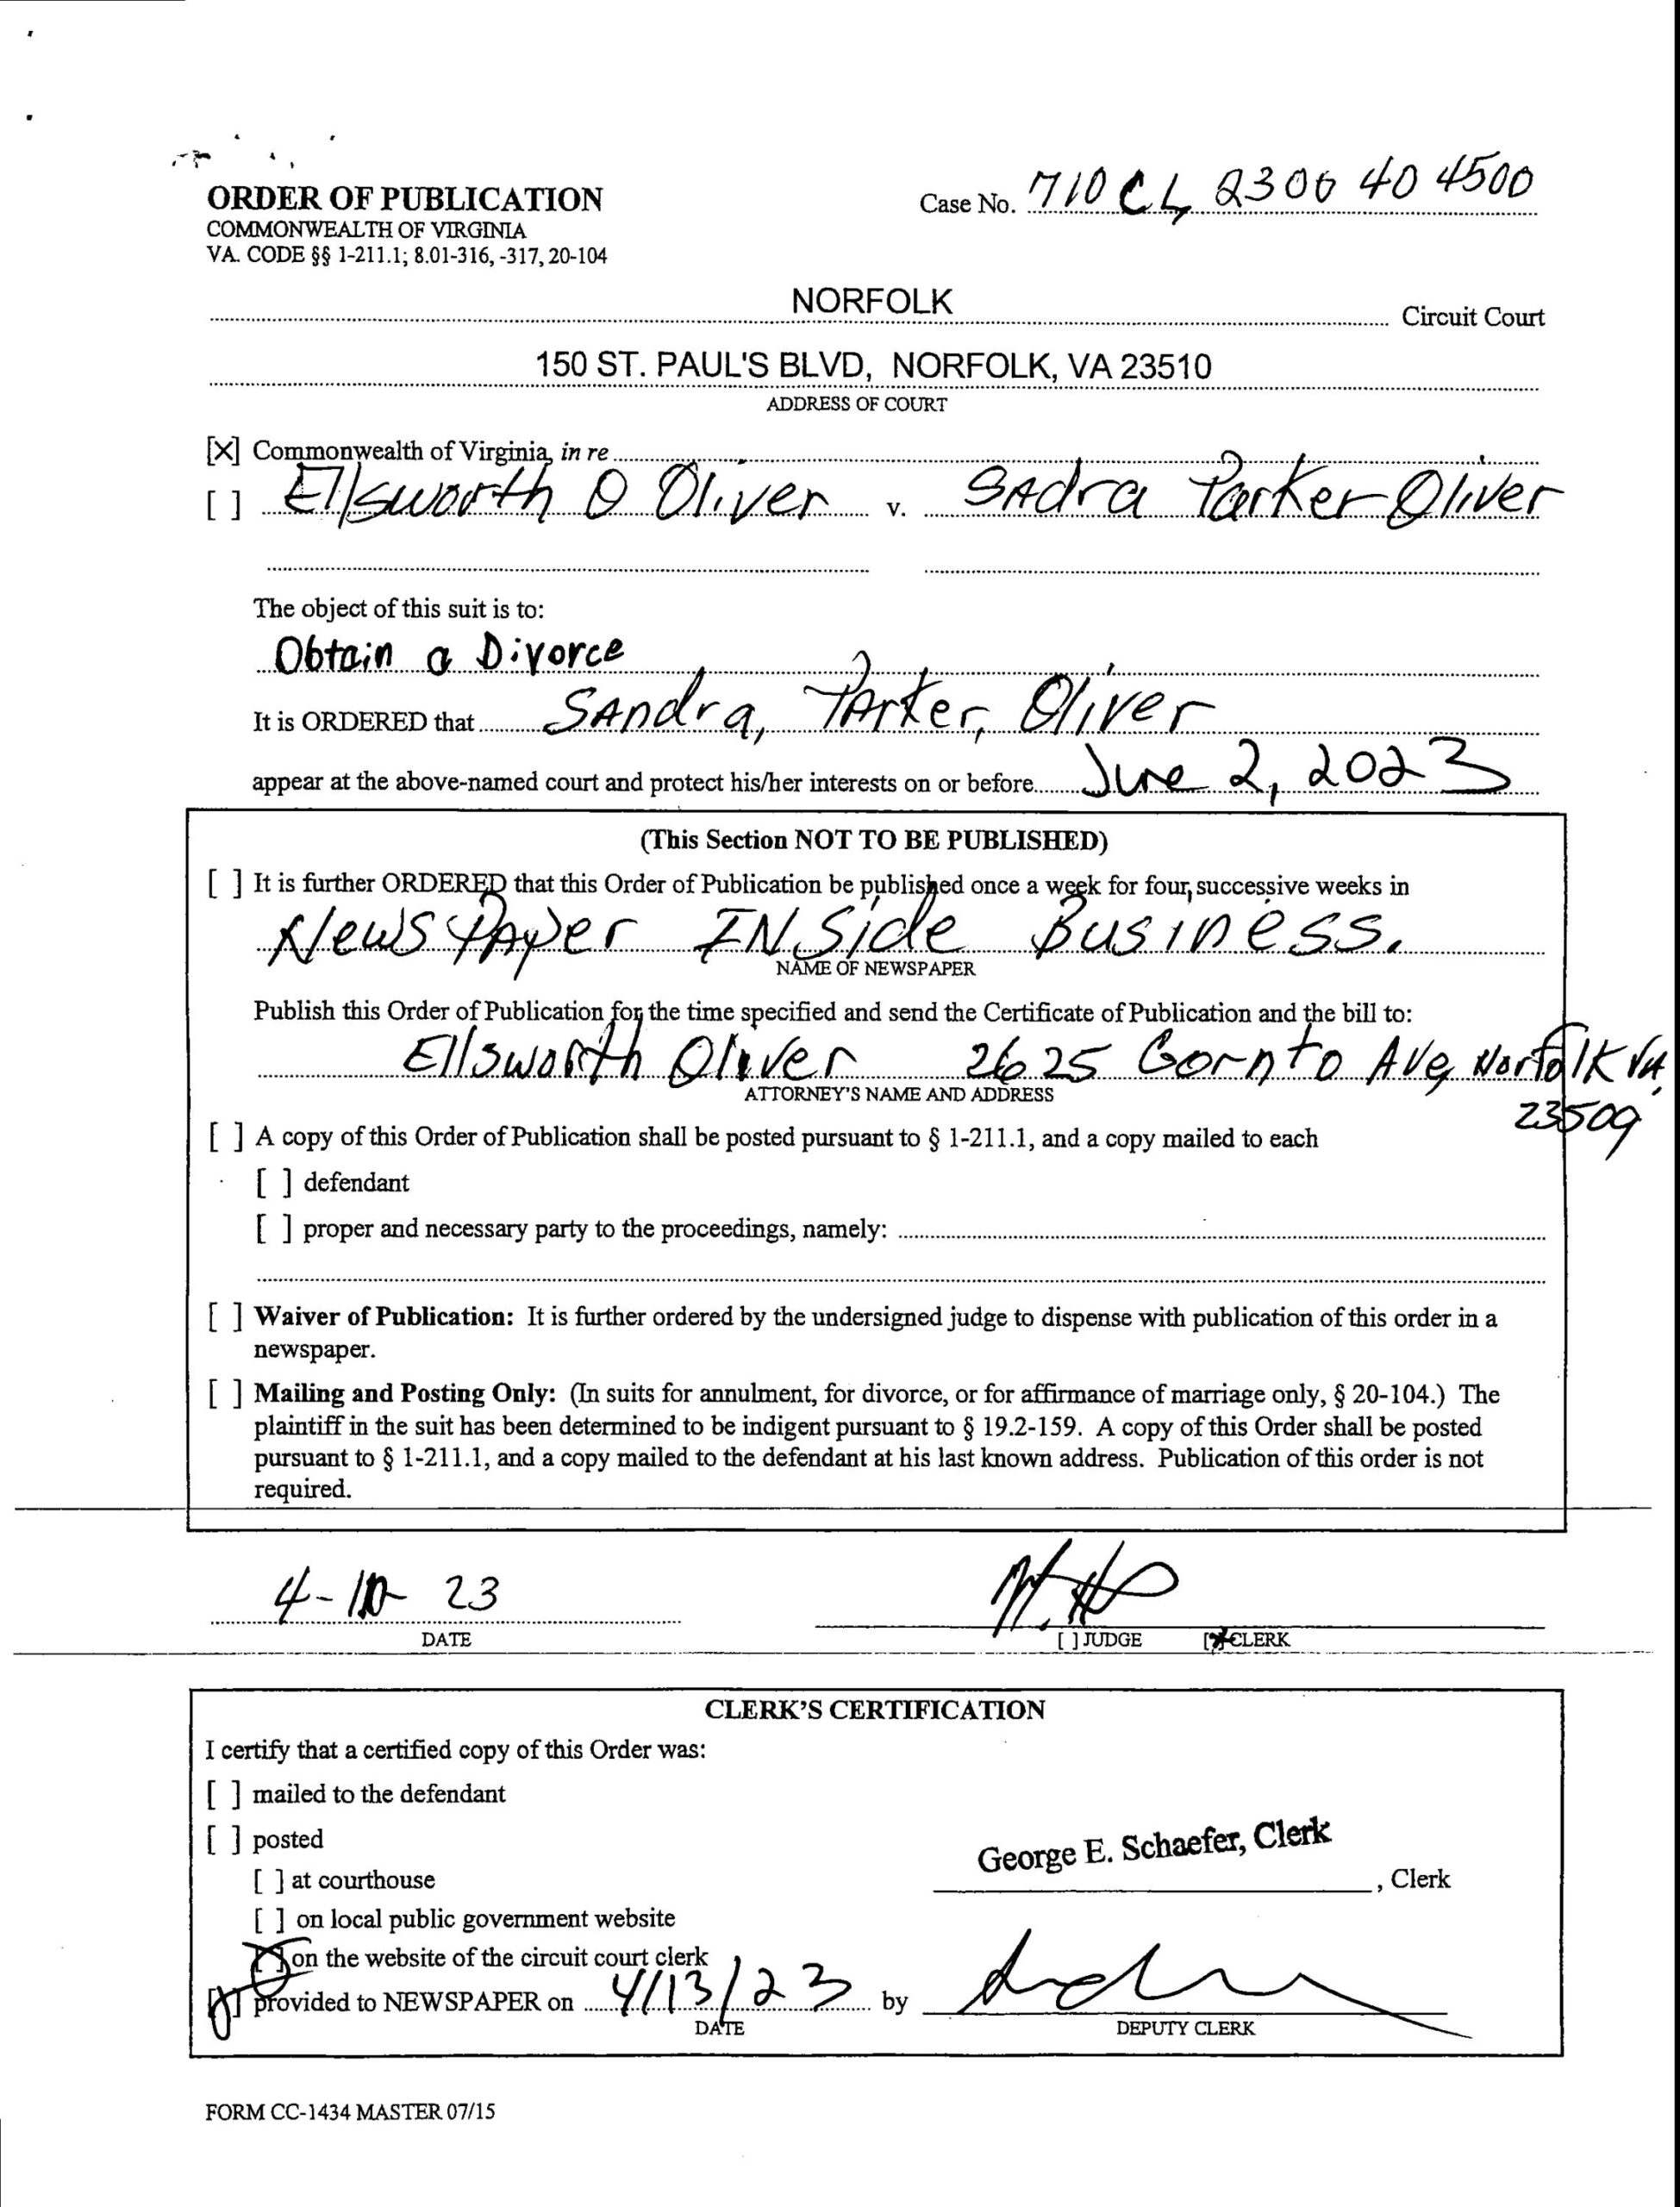 ORDER OF PUBLICATION
Case No. 710 CL 2300 40 4500
COMMONWEALTH OF VIRGINIA
VA. CODE §§ 1-211.1; 8.01-316, -317, 20-104
NORFOLK Circuit Court
150 ST. PAUL'S BLVD, NORFOLK, VA 23510
ADDRESS OF COURT
[X] Commonwealth of Virginia, in re
[ ] Ellsworth O Oliver v. SAdra Parker Oliver
The object of this suit is to:
Obtain a Divorce
It is ORDERED that SAndra, PArker, Oliver
appear at the above-named court and protect his/her interests on or before June 2, 2023
(This Section NOT TO BE PUBLISHED)
[ ] It is further ORDERED that this Order of Publication be published once a week for four successive weeks in
News PAper INSide Business.
NAME OF NEWSPAPER
Publish this Order of Publication for the time specified and send the Certificate of Publication and the bill to:
Ellsworth Oliver 2625 Gornto Ave, Norfolk VA,
ATTORNEY'S NAME AND ADDRESS
23509
[ ] A copy of this Order of Publication shall be posted pursuant to § 1-211.1, and a copy mailed to each
[ ] defendant
[ ] proper and necessary party to the proceedings, namely:
[ ] Waiver of Publication: It is further ordered by the undersigned judge to dispense with publication of this order in a
newspaper.
[ ] Mailing and Posting Only: (In suits for annulment, for divorce, or for affirmance of marriage only, § 20-104.) The
plaintiff in the suit has been determined to be indigent pursuant to § 19.2-159. A copy of this Order shall be posted
pursuant to § 1-211.1, and a copy mailed to the defendant at his last known address. Publication of this order is not
required.
4-10-23
DATE
[ ] JUDGE [X] CLERK
CLERK'S CERTIFICATION
I certify that a certified copy of this Order was:
[ ] mailed to the defendant
[ ] posted
George E. Schaefer, Clerk
[ ] at courthouse
, Clerk
[ ] on local public government website
[X] on the website of the circuit court clerk
[X] provided to NEWSPAPER on 4/13/23 by
DATE
DEPUTY CLERK
FORM CC-1434 MASTER 07/15